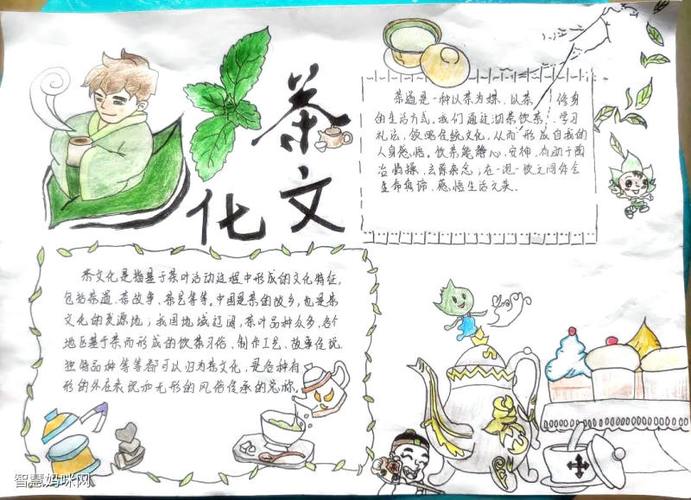 茶文化
茶道是一种以茶为媒，以茶修身
的生活方式。我们通过沏茶饮茶，学习
礼法，领略传统文化，从而形成自我的
人身感悟。饮茶能静心、安神，有助于陶
冶情操、去除杂念；在一泡一饮之间体会
生命真谛，感悟生活之美。
茶文化是指基于茶叶活动过程中形成的文化特征，
包括茶道、茶故事、茶艺等等。中国是茶的故乡，也是茶
文化的发源地；我国地域辽阔，茶叶品种众多，各个
地区基于茶而形成的饮茶习俗、制作工艺、故事传说、
独特品种等等都可以归为茶文化，是各种有
形的外在表现和无形的风俗传承的总称。
智慧妈咪网